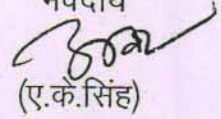 भवदीय
(ए.के.सिंह)